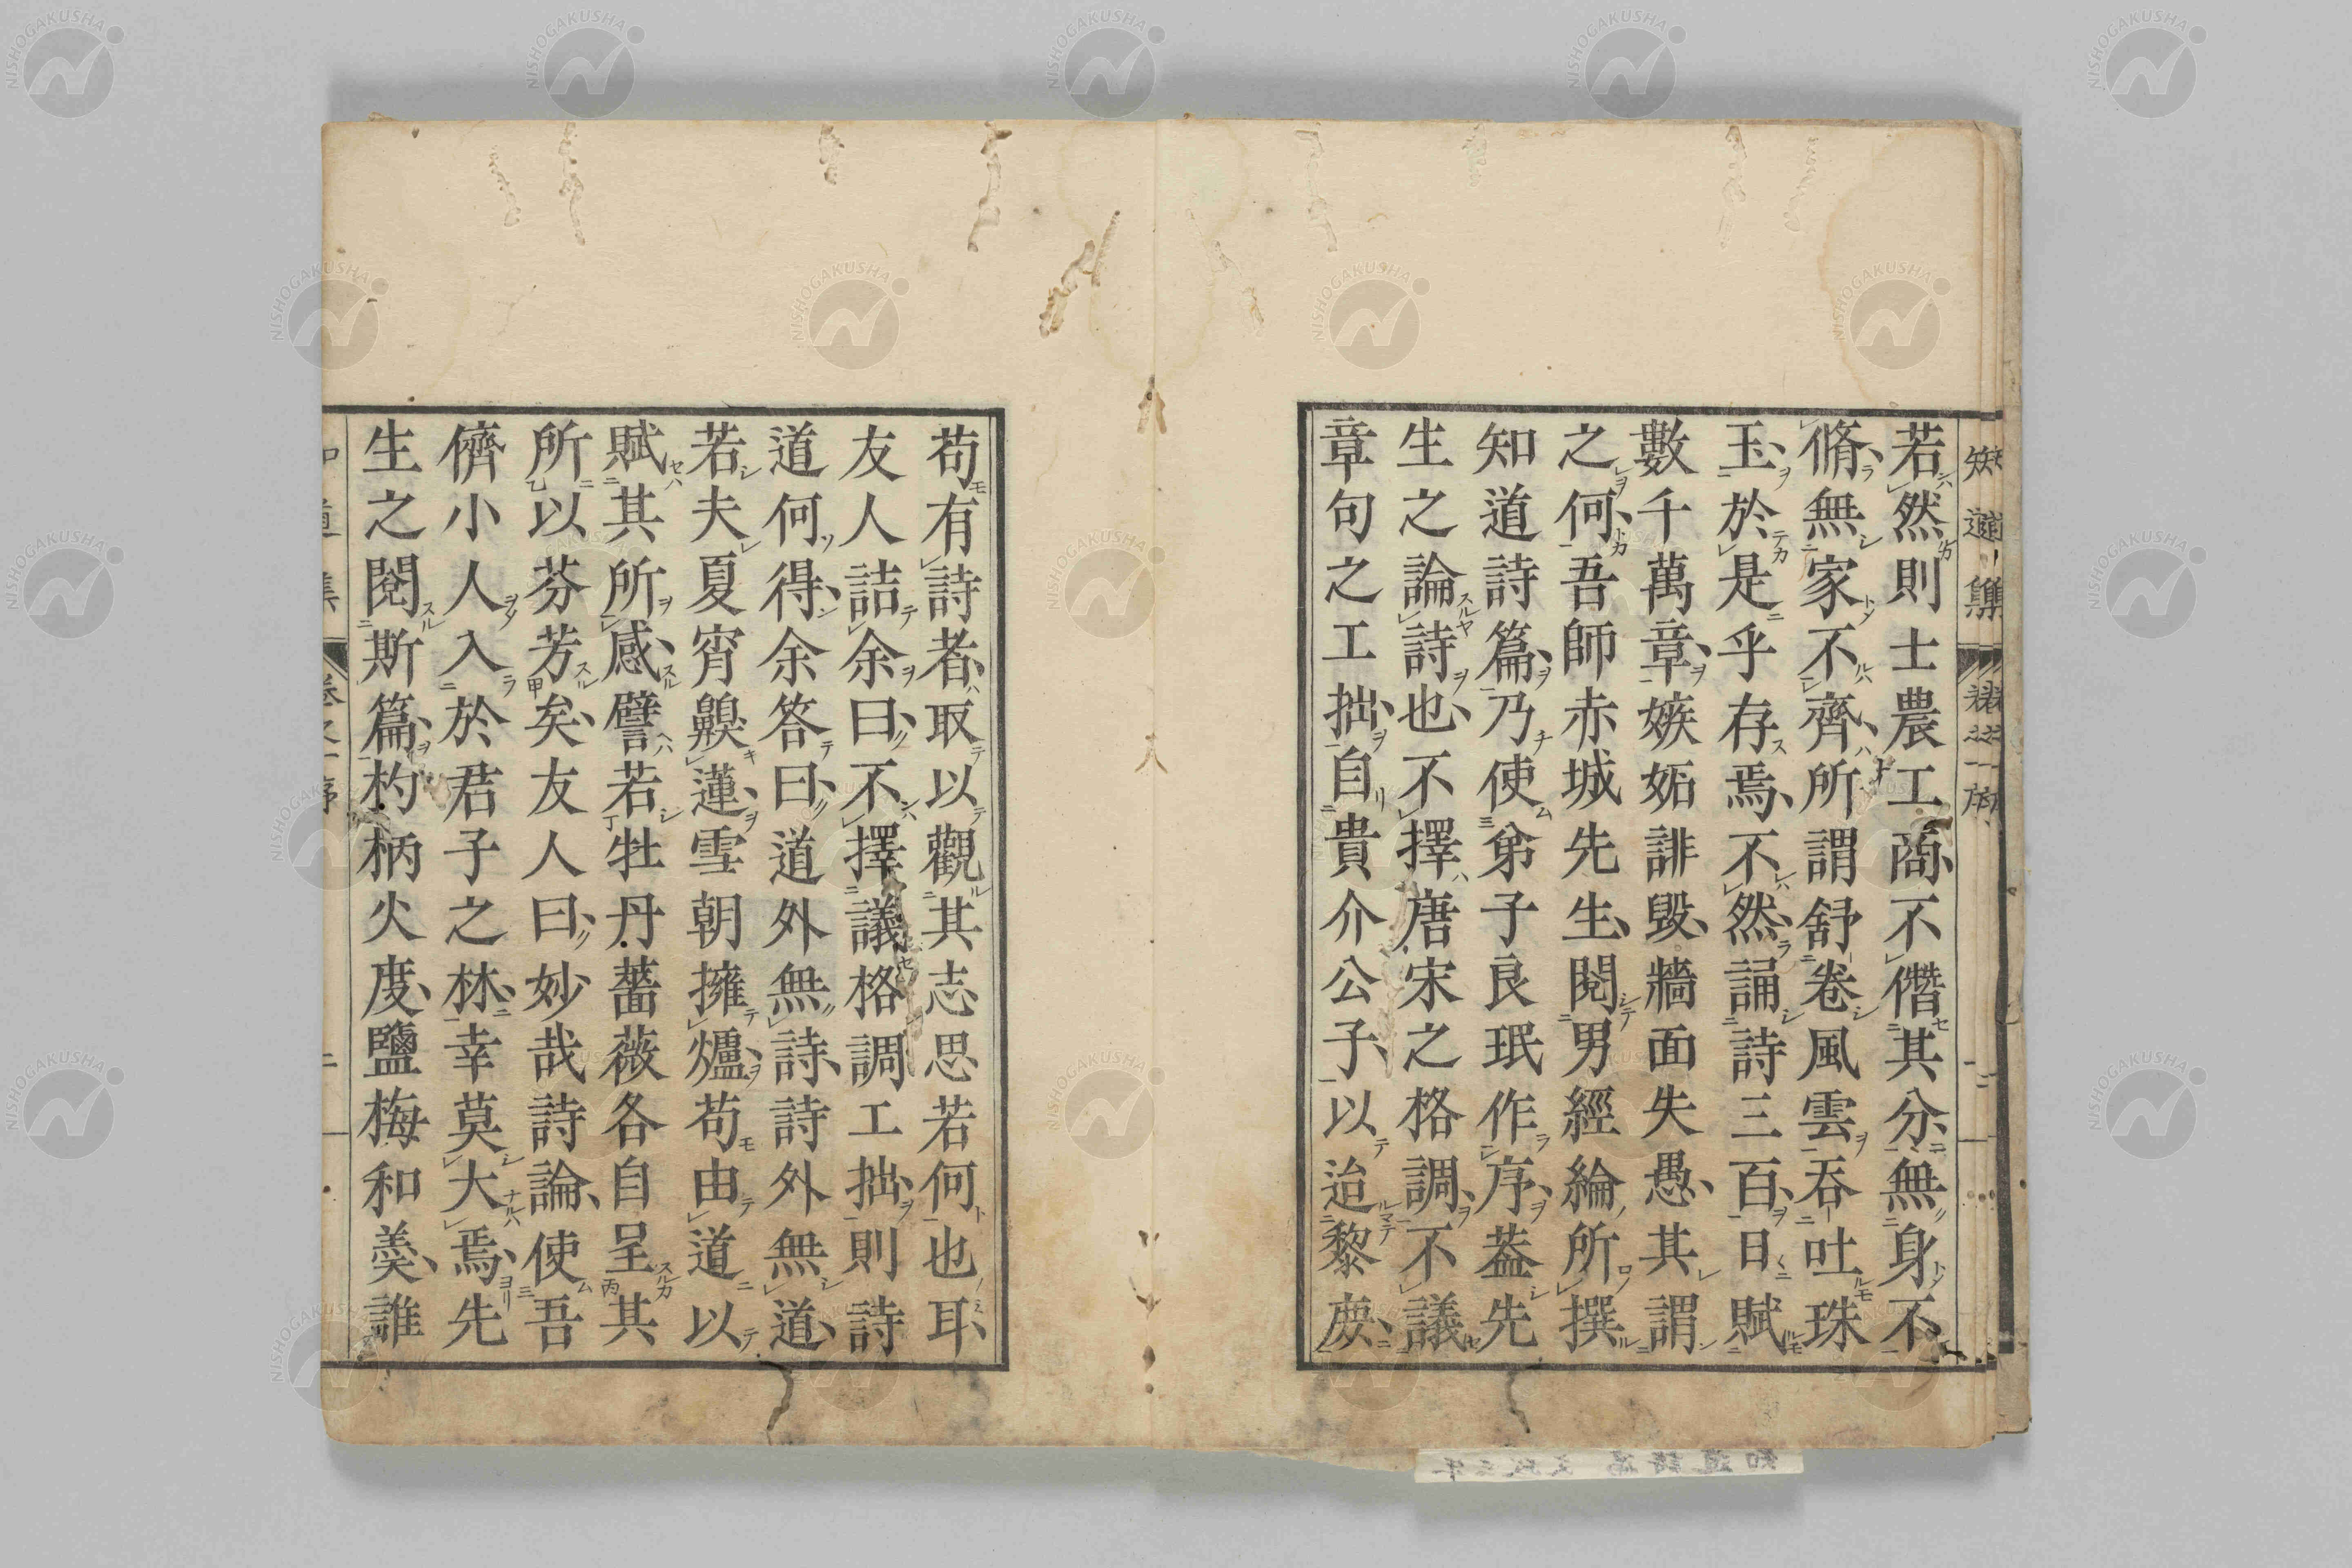 若然則士農工商、不僭其分、無身不
脩、無家不齊、所謂舒卷風雲吞吐珠
玉、於是乎存焉、不然、誦詩三百、日賦
數千萬章、嫉妬誹毀、牆面失愚、其謂
之何、吾師赤城先生、閱男經綸所撰
知道詩篇、乃使弟子良珉作序、葢先
生之論詩也、不擇唐宋之格調、不議
章句之工拙、自貴介公子、以迨黎庾、
苟有詩者、取以觀其志思若何也耳、
友人詰余曰、不擇議格調工拙、則詩
道何得、余答曰、道外無詩、詩外無道、
若夫夏宵齅蓮、雪朝擁爐、苟由道以
賦其所感、譬若牡丹薔薇各自呈其
所以芬芳矣、友人曰、妙哉詩論、使吾
儕小人入於君子之林、幸莫大焉、先
生之閱斯篇、杓柄火度、鹽梅和羹、誰
知道集
卷之一序
二
NISHOGAKUSHA